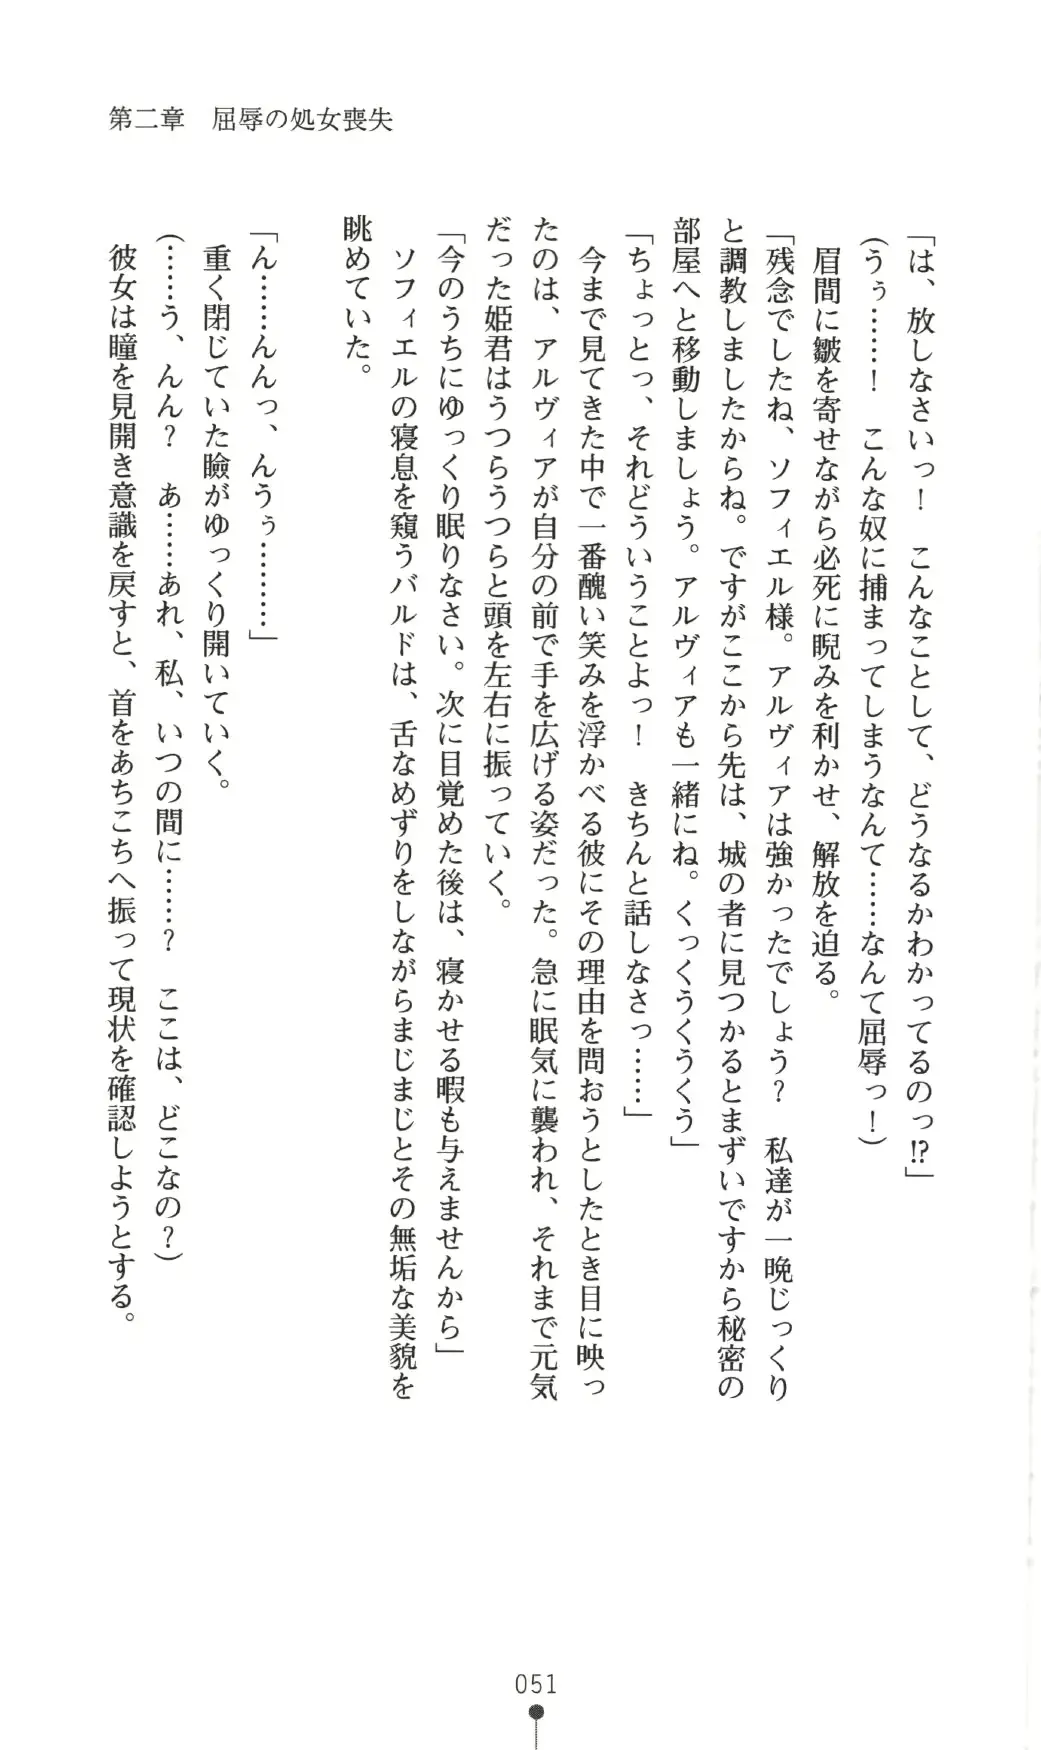 第二章　屈辱の処女喪失
「は、放しなさいっ！　こんなことして、どうなるかわかってるのっ!?」
（うぅ……！　こんな奴に捕まってしまうなんて……なんて屈辱っ！）
　眉間に皺を寄せながら必死に睨みを利かせ、解放を迫る。
「残念でしたね、ソフィエル様。アルヴィアは強かったでしょう？　私達が一晩じっくり
と調教しましたからね。ですがここから先は、城の者に見つかるとまずいですから秘密の
部屋へと移動しましょう。アルヴィアも一緒にね。くっくうくうくう」
「ちょっとっ、それどういうことよっ！　きちんと話しなさっ……」
　今まで見てきた中で一番醜い笑みを浮かべる彼にその理由を問おうとしたとき目に映っ
たのは、アルヴィアが自分の前で手を広げる姿だった。急に眠気に襲われ、それまで元気
だった姫君はうつらうつらと頭を左右に振っていく。
「今のうちにゆっくり眠りなさい。次に目覚めた後は、寝かせる暇も与えませんから」
　ソフィエルの寝息を窺うバルドは、舌なめずりをしながらまじまじとその無垢な美貌を
眺めていた。
「ん……んんっ、んうぅ………」
　重く閉じていた瞼がゆっくり開いていく。
（……う、んん？　あ……あれ、私、いつの間に……？　ここは、どこなの？）
　彼女は瞳を見開き意識を戻すと、首をあちこちへ振って現状を確認しようとする。
051